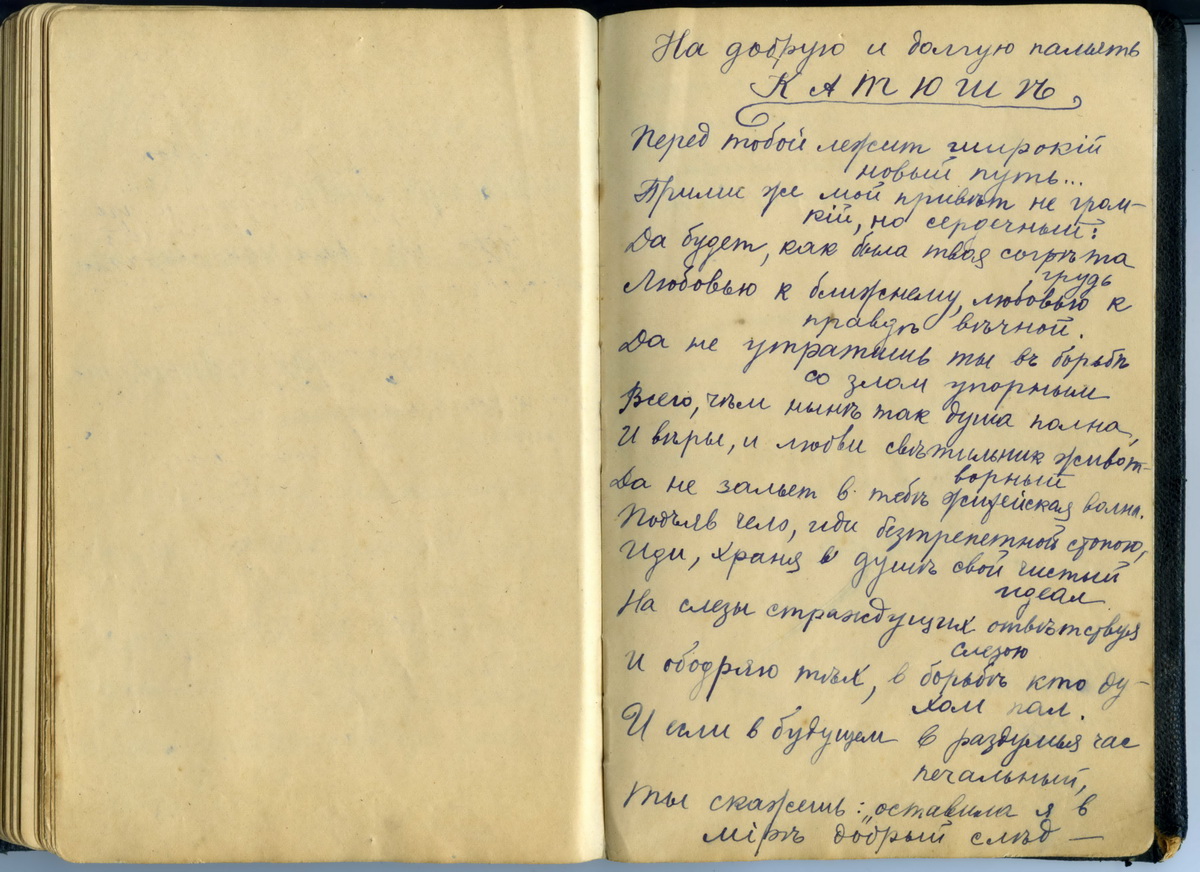 На добрую и долгую память
КАТЮШѢ
Перед тобой лежит широкій
новый путь...
Прими же мой привѣт не гром-
кій, но сердечный:
Да будет, как была твоя согрѣта
грудь
Любовью к ближнему, любовью к
правдѣ вѣчной.
Да не утратишь ты въ борьбѣ
со злом упорным
Всего, чѣм нынѣ так душа полна,
И вѣры, и любви свѣтильник живот-
ворный
Да не зальет в тебѣ житейская волна.
Подъяв чело, иди безтрепетной стопою,
Иди, храня в душѣ свой чистый
идеал
На слезы страждущих отвѣтствуя
слезою
И ободряю тѣх, в борьбѣ кто ду-
хом пал.
И если в будущем в раздумья час
печальный,
Ты скажешь: „оставила я в
мірѣ добрый слѣд —